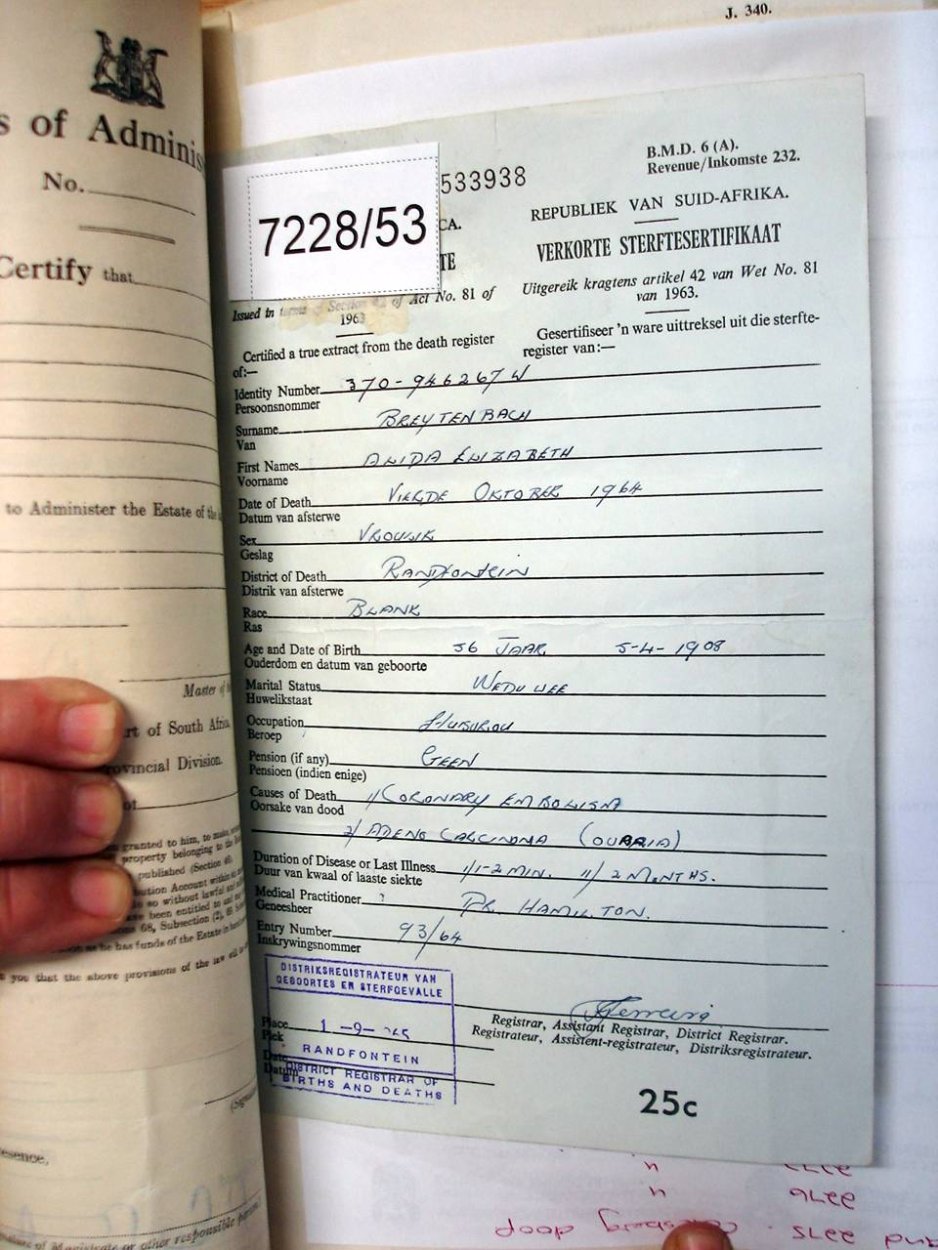 J. 340.
s of Adminis
No.
Certify that
to Administer the Estate of the
Master of
rt of South Afric
rovincial Division.
ot
granted to him, to
property belonging to the
published (Section
bution Account within
so without lawful
been entitled to
68, Subsection (2),
as he has funds of the Estate in
you that the above provisions of the law will
esence,
of Magistrate or other responsible person.
B.M.D. 6 (A).
Revenue/Inkomste 232.
533938
7228/53
CA.
TE
REPUBLIEK VAN SUID-AFRIKA.
VERKORTE STERFTESERTIFIKAAT
Issued in terms of Section 42 of Act No. 81 of
1963
Uitgereik kragtens artikel 42 van Wet No. 81
van 1963.
Certified a true extract from the death register
of:—
Gesertifiseer 'n ware uittreksel uit die sterfte-
register van:—
Identity Number 370-946267 W
Persoonsnommer
Surname BREYTENBACH
Van
First Names ALIDA ELIZABETH
Voorname
Date of Death VIERDE OKTOBER 1964
Datum van afsterwe
Sex VROULIK
Geslag
District of Death RANDFONTEIN
Distrik van afsterwe
Race BLANK
Ras
Age and Date of Birth 56 JAAR 5-4-1908
Ouderdom en datum van geboorte
Marital Status WEDUWEE
Huwelikstaat
Occupation HUISVROU
Beroep
Pension (if any) GEEN
Pensioen (indien enige)
Causes of Death 1/ CORONARY EMBOLISM
Oorsake van dood
2/ ADENO CARCINOMA (OVARIA)
Duration of Disease or Last Illness 1/ 1-2 MIN. 11/ 2 MONTHS.
Duur van kwaal of laaste siekte
Medical Practitioner ? DR. HAMILTON.
Geneesheer
Entry Number 93/64
Inskrywingsnommer
DISTRIKSREGISTRATEUR VAN
GEBOORTES EN STERFGEVALLE
Place 1 -9-
Plek
RANDFONTEIN
Date
Datum
DISTRICT REGISTRAR OF
BIRTHS AND DEATHS
Registrar, Assistant Registrar, District Registrar.
Registrateur, Assistent-registrateur, Distriksregistrateur.
25c
2277
2276
2275
doop